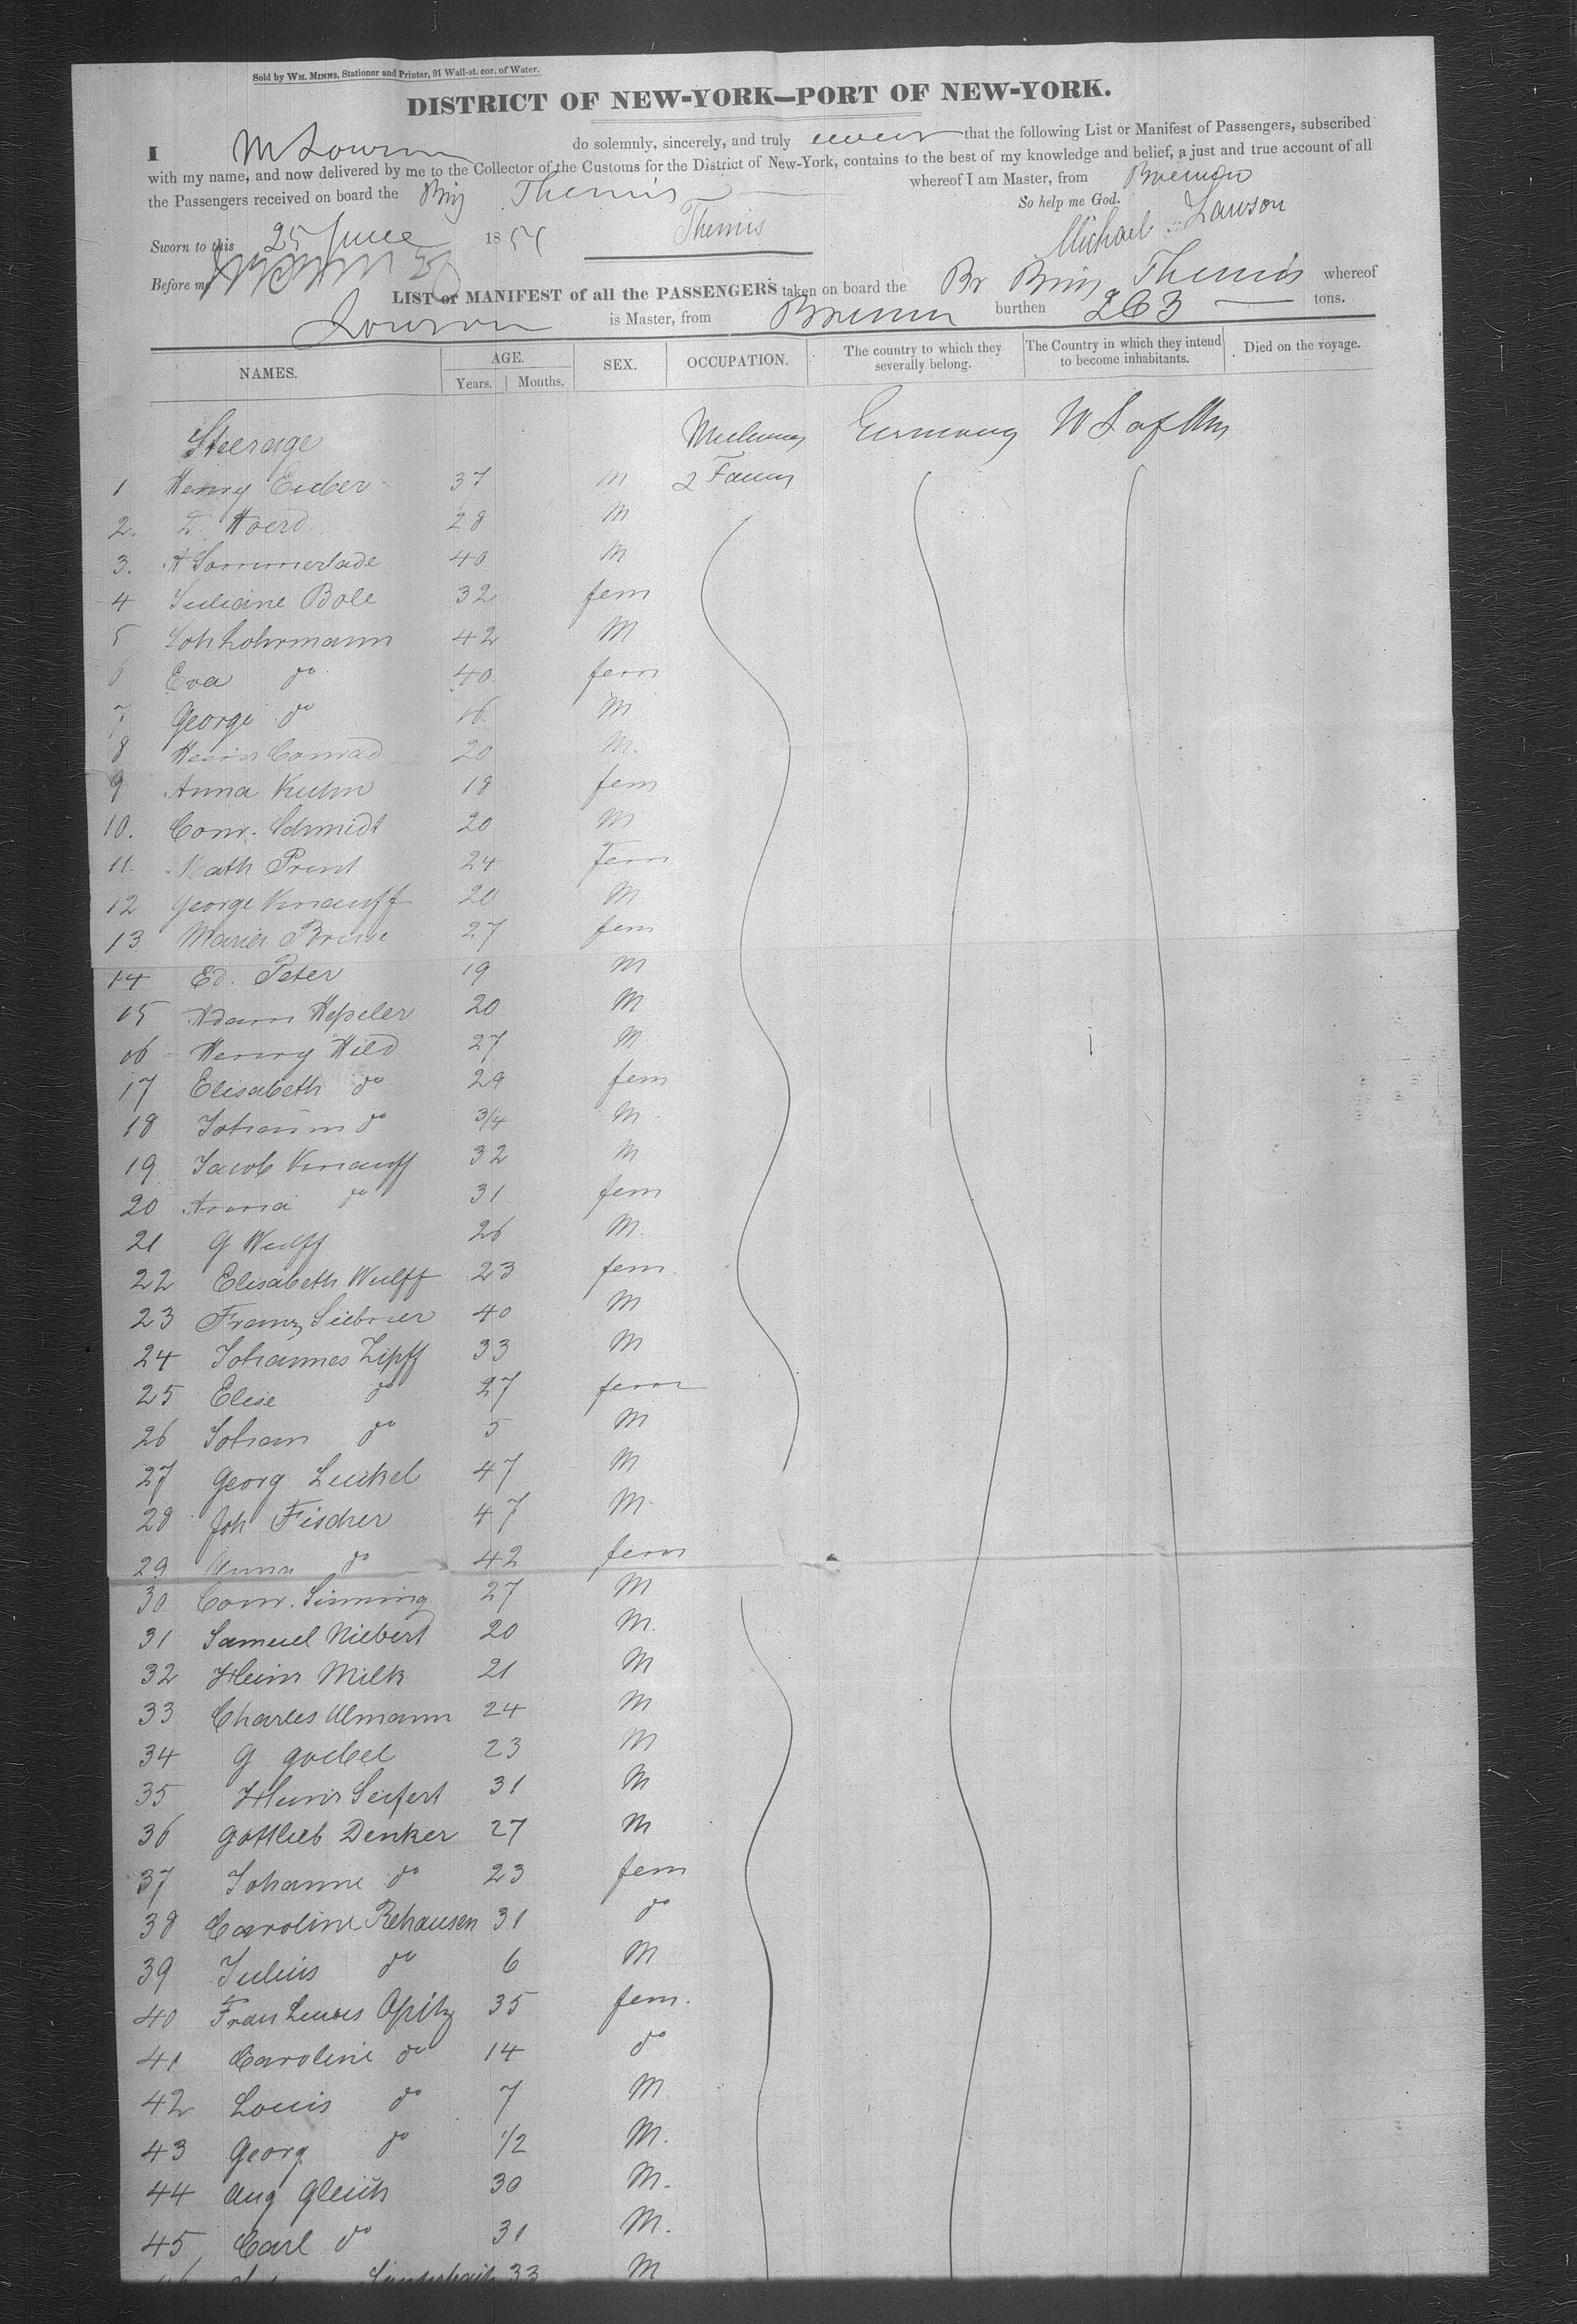 Sold by WM. MINNS, Stationer and Printer, 91 Wall-st. cor. of Water.
DISTRICT OF NEW-YORK—PORT OF NEW-YORK.
I M Lawson do solemnly, sincerely, and truly swear that the following List or Manifest of Passengers, subscribed
with my name, and now delivered by me to the Collector of the Customs for the District of New-York, contains to the best of my knowledge and belief, a just and true account of all
the Passengers received on board the Brig Themis whereof I am Master, from Bremen
So help me God.
Sworn to this 25 June 18 Themis Michael Lawson
Before me
LIST or MANIFEST of all the PASSENGERS taken on board the Br Brig Themis whereof
Lawson is Master, from Bremen burthen 263 tons.
NAMES. AGE. Years. Months. SEX. OCCUPATION. The country to which they severally belong. The Country in which they intend to become inhabitants. Died on the voyage.
Steerage Germany
1 Henry 37 M
2. 28 M
3. A Sommerlade 40 M
4 Juliane Bole 32 fem
5 Joh Lohrmann 42 M
6 Eva do 40 fem
7 George do 16 M
8 Heinr Conrad 20 M.
9 Anna Kuhn 18 fem
10. Conr. Schmidt 20 M
11. Kath 24 Fem
12 George Knauff 20 M
13 Maria 27 fem
14 Ed. Peter 19 M
15 Adam Hepeler 20 M
16 Henry Hild 27 M
17 Elisabeth do 29 fem
18 Johann do 3/4 M
19 Jacob Knauff 32 M
20 Anna do 31 fem
21 G Wulff 26 M.
22 Elisabeth Wulff 23 fem.
23 Franz Siebner 40 M
24 Johannes Zipff 33 M
25 Elise do 27 fem
26 Johan do 5 M
27 Georg Leukel 47 M
28 Joh Fischer 47 M
29 Anna do 42 fem
30 Conr. Sinning 27 M
31 Samuel Niebert 20 M.
32 Heinr Milk 21 M
33 Charles Ulmann 24 M
34 G Goebel 23 M
35 Heinr Seifert 31 M
36 Gottlieb Denker 27 M
37 Johanne do 23 fem
38 Caroline Rehausen 31 do
39 Julius do 6 M
40 Frau Louis Opitz 35 fem.
41 Caroline do 14 do
42 Louis do 7 M
43 Georg do 1/2 M.
44 Aug Gleich 30 M.
45 Carl do 31 M.
33 M